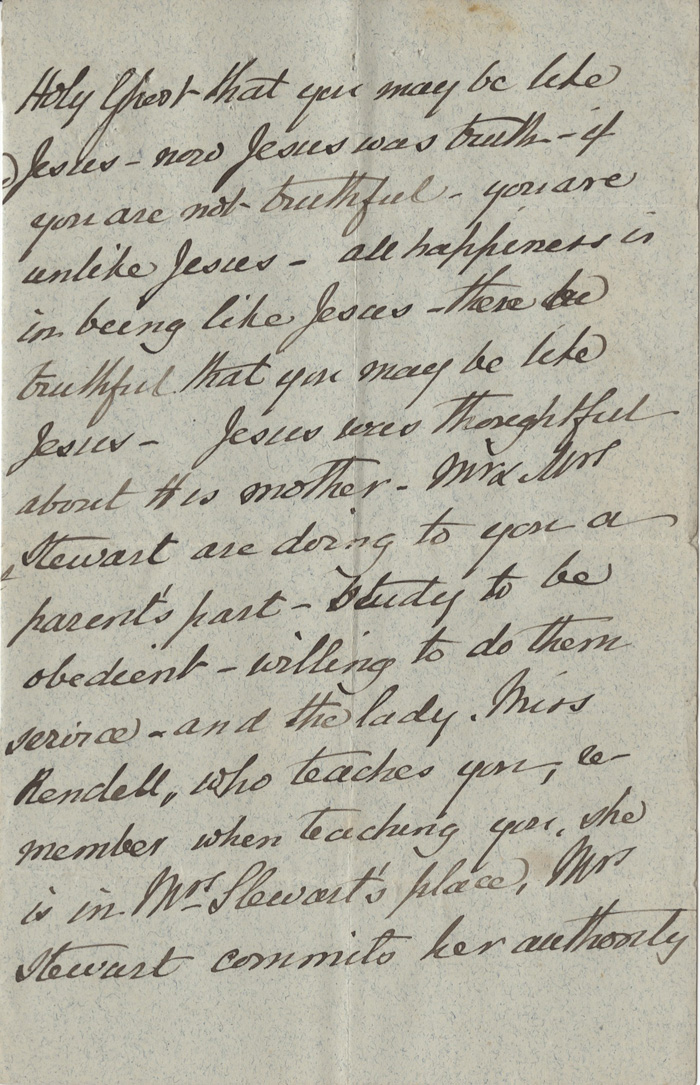 Holy Ghost that you may be like
Jesus - now Jesus was truth - if
you are not truthful - you are
unlike Jesus - all happiness is
in being like Jesus - there be
truthful that you may be like
Jesus - Jesus was thoughtful
about His mother - Mr & Mrs
Stewart are doing to you a
parent's part - Study to be
obedient - willing to do them
service - and the lady, Miss
Rendell, who teaches you, re-
member when teaching you, she
is in Mrs Stewart's place, Mrs
Stewart commits her authority